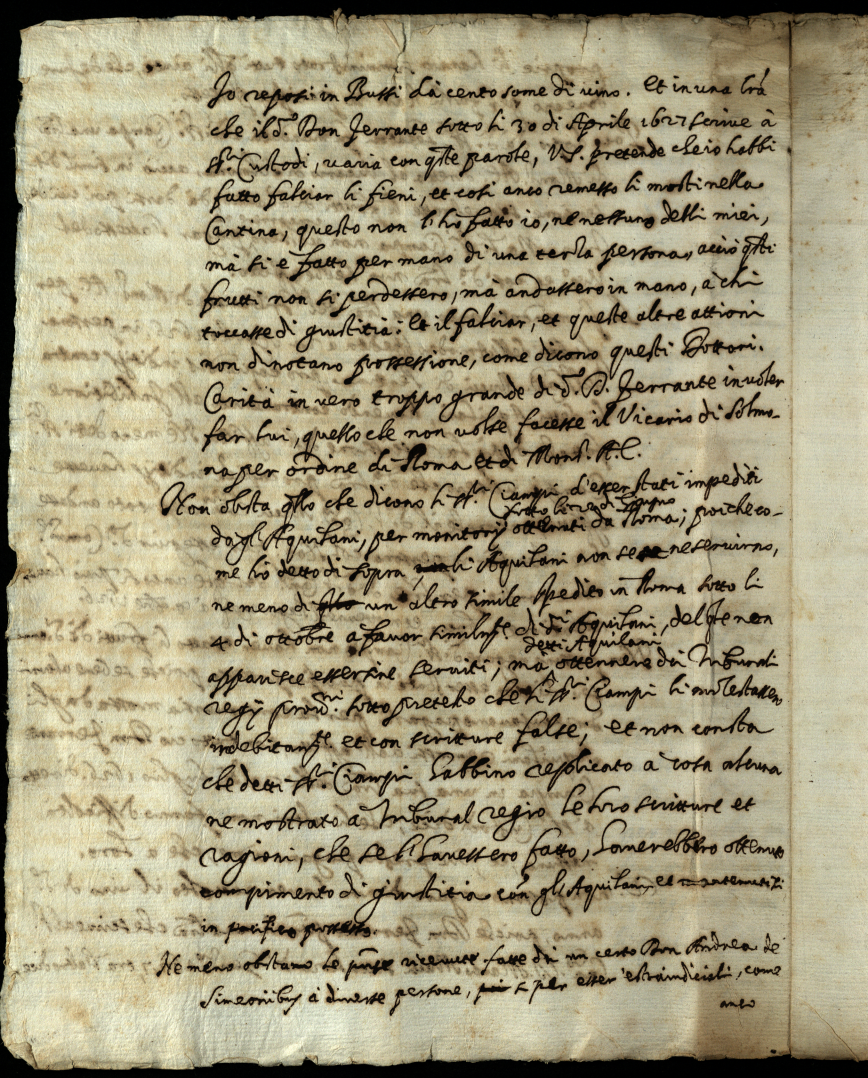 Io reposi in Bussi da cento some di vino. Et in una lrá
che il d.º Don Ferrante sotto li 30 di Aprile 1627 scrive à
ss.ri Custodi, varia con qste parole, V.S. pretende che io habbi
fatto falciar li fieni, et così anco remesso li mosti nella
Cantina, questo non l'hò fatto io, ne nessuno delli miei,
mà si è fatto per mano di una terza persona, acciò qsti
frutti non si perdessero, mà andassero in mano, à chi
toccasse di giustitia: Et il falciar, et queste altre attioni
non dinotano possessione, come dicono questi Dottori.
Carità in vero troppo grande di d.º D. Ferrante in voler
far lui, quello che non volse facesse il Vicario di Solmo-
na per ordine di Roma et di Mons.r A.C.
Non obsta qllo che dicono li ss.ri Ciampi d'esser stati impediti
sotto li di Giugno
dagl'Aquilani, per monitorij ottenuti da Roma; poiche co-
me hò detto di sopra li Aquilani non se ne servirno,
ne meno di un altro simile spedito in Roma sotto li
4 di ottobre a favor similmte di di Aquilani, del qle non
detti Aquilani
apparisce essersene serviti; mà ottennere dai Tribunali
regij sotto pretesto che li ss.ri Ciampi li molestassero
indebitamte et con scritture false; et non consta
che detti ss.ri Ciampi habbino replicato à cosa alcuna
ne mostrato à Tribunal regio le loro scritture et
ragioni, che se l'havessero fatto, haverebbero ottenuto
compimento di giustitia con gl'Aquilani, et mantenutili
in pacifico possesso.
Ne meno obstano le ricevute fatte da un certo Don Andrea de
Simeonibus à diverse persone, si per esser estraiudiciali, come
anco